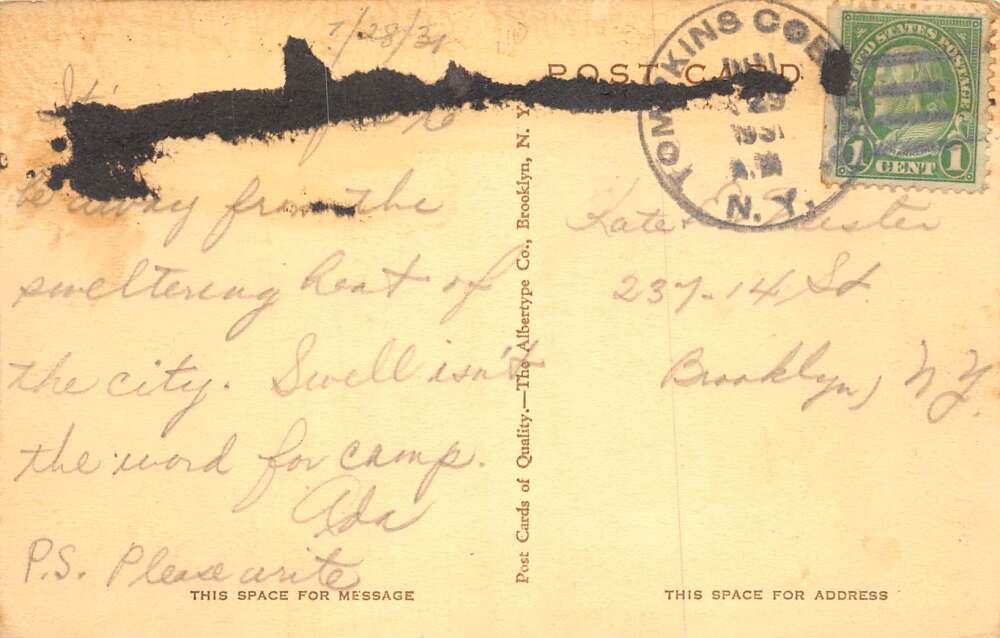 7/28/31
It's
be away from the
sweltering heat of
the city. Swell isn't
the word for camp.
Ada
P.S. Please write
THIS SPACE FOR MESSAGE
Post Cards of Quality.—The Albertype Co., Brooklyn, N. Y.
POST CARD
TOMPKINS COVE
JUL
29
1931
A.M.
N. Y.
UNITED STATES POSTAGE
1 CENT 1
Kate
237-14 St.
Brooklyn, N.Y.
THIS SPACE FOR ADDRESS